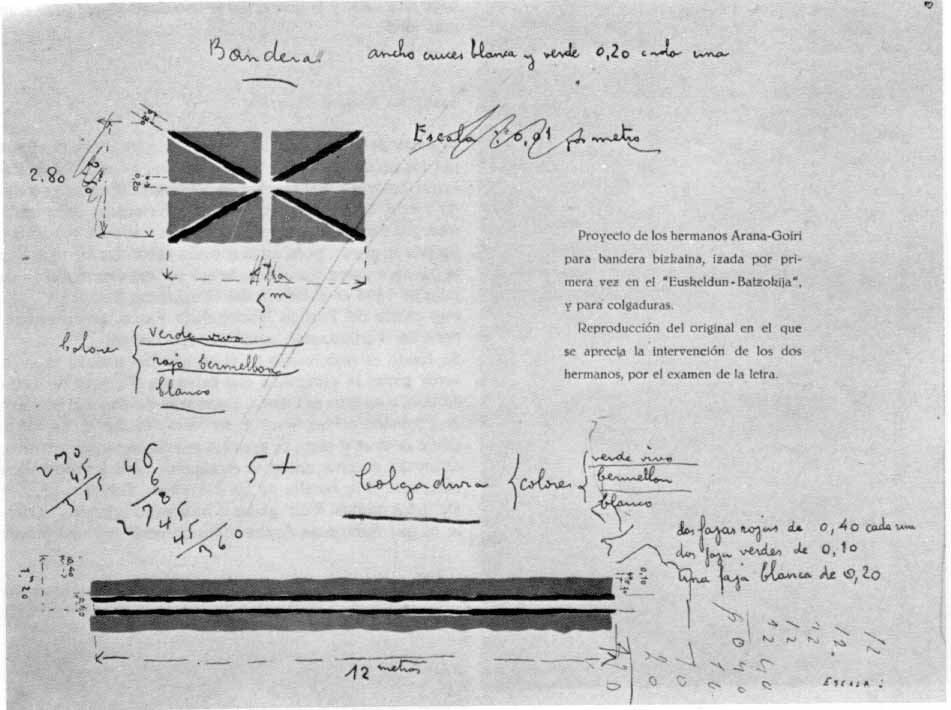 Bandera. ancho cruces blanca y verde 0,20 cada una
Escala 0,01 por metro
2.80
0,20
5 m
Colores
verde vivo
rojo bermellon
blanco
Proyecto de los hermanos Arana-Goiri
para bandera bizkaina, izada por pri-
mera vez en el "Euskeldun-Batzokija",
y para colgaduras.
Reproducción del original en el que
se aprecia la intervención de los dos
hermanos, por el examen de la letra.
270
45
315
46
6
278
45
45
360
5 +
Colgadura
colores
verde vivo
bermellon
blanco
dos fajas rojas de 0,40 cada una
dos fajas verdes de 0,10
una faja blanca de 0,20
0,40
0,10
12 metros
12
12
12
12
ESCALA :